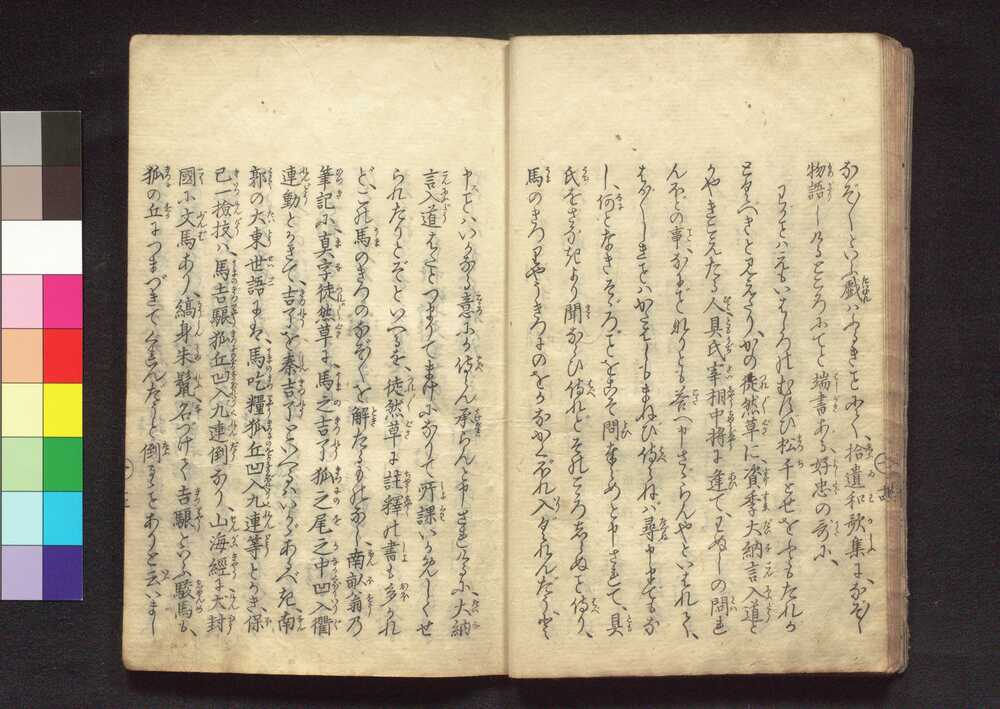 なぞ〳〵といふ戯ハふるきことにて、拾遺和歌集になぞ〳〵
物語しけるところにてと端書ある、好忠の哥に、
わがことハえもいはしろのむすび松千とせをふともたれか
とくべきと見えたり、かの徒然草に、資季大納言入道と
かや、きこえたる人、具氏宰相中将に逢て、わぬしの問れ
んほどの事、なにごとなりとも答へ申さざらんやといはれけれバ、
はか〴〵しきことハ、かたはしもまねび侍らねバ、尋申までもな
し、何となきそゞろごとをこそ問奉らめと申されて、具
氏をさなきより聞ならひ侍れど、そのこころしらぬこと侍り、
馬のきつりやうきつにのをかなかくぼれ入くれんだうと
申ことハ、いかなる意にか侍らん、承らんと申されけるに、大納
言入道はたとつまりてまけになりて、所課いかめしくせ
られたりとぞといへるを、徒然草に註釋の書も多かれ
ど、この馬のきつのなぞ〳〵を解たるものなし、南畝翁乃
筆記に、真字徒然草に、馬之吉了狐之尾之中凹入衢
連動とかきて、吉了を秦吉了といへるハいかゞあるべき、南
郭の大東世語にハ、馬吃糧狐丘凹入九連等とかき、保
己一撿挍ハ、馬吉驥狐丘凹入九連倒なり、山海經に犬封
國に文馬あり、縞身朱鬣名づけて吉驥といふ駿馬も、
狐の丘につまづきてくれんだうと倒るゝことありと云いまし